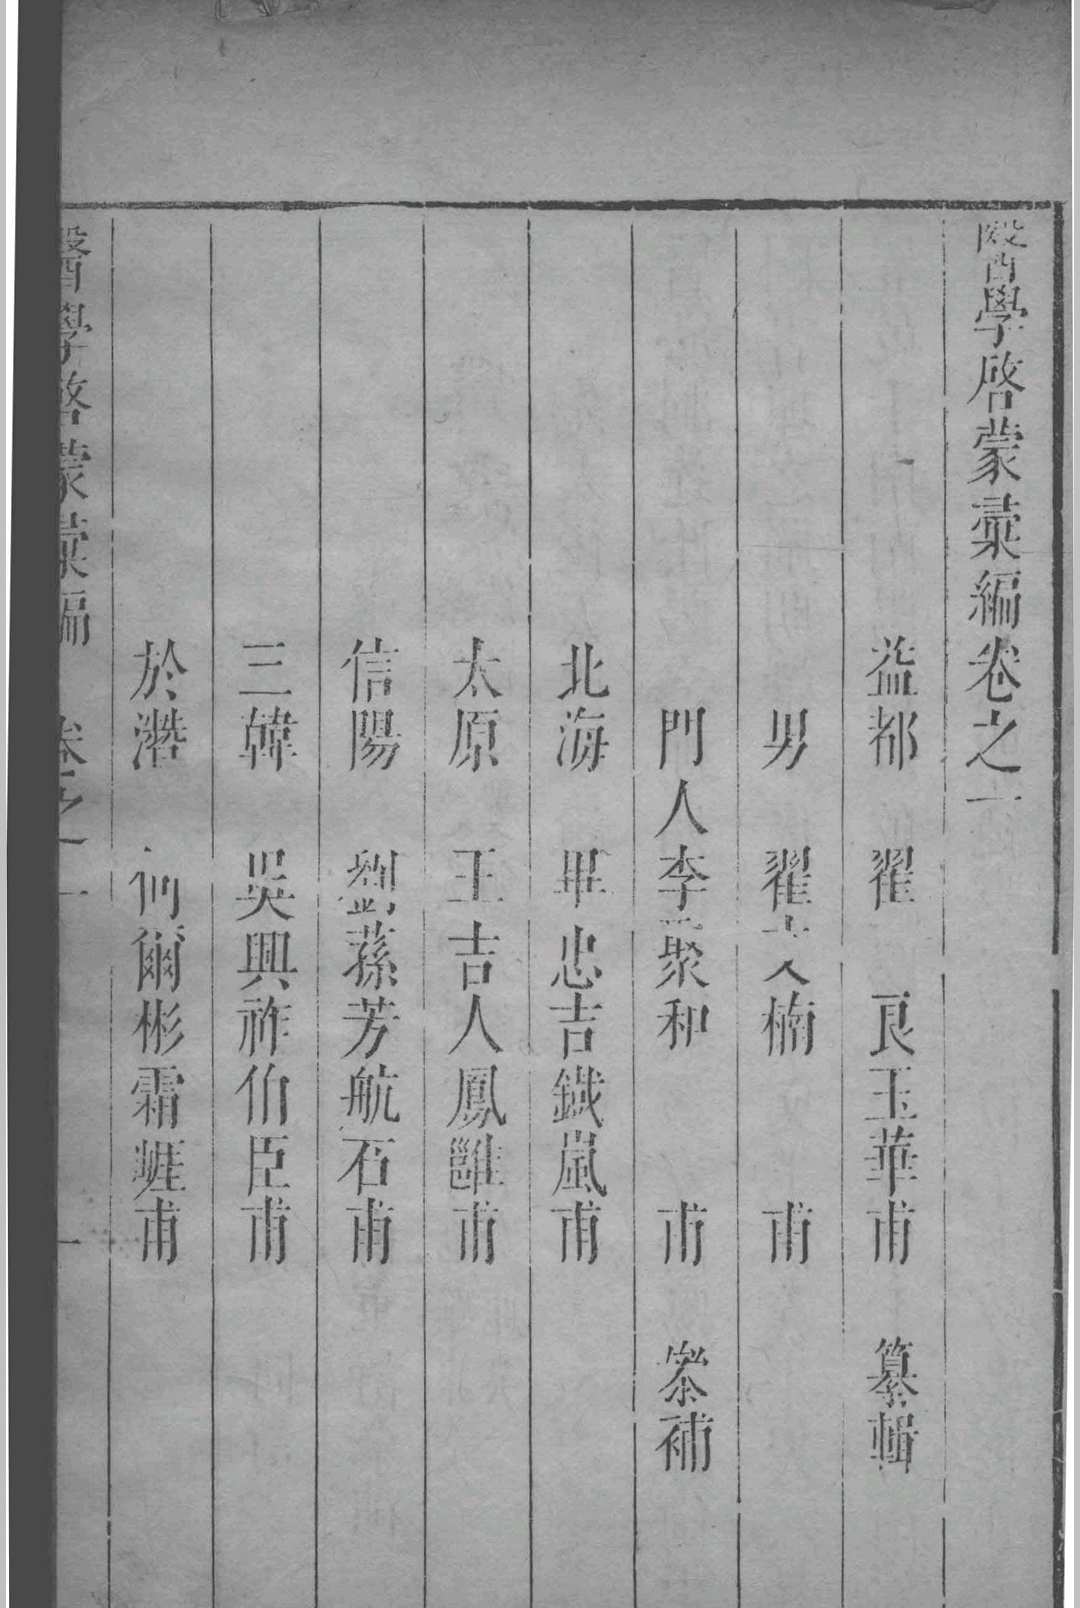 醫學啓蒙彚編卷之一
益都 翟 良玉華甫 纂輯
男 翟文楠 甫
門人李聚和 甫 叅補
北海 畢忠吉鐵嵐甫
太原 王吉人鳳雝甫
信陽 劉蓀芳航石甫
三韓 吳興祚伯臣甫
於潛 何爾彬霜崕甫
醫學啓蒙彚編 卷之一 一